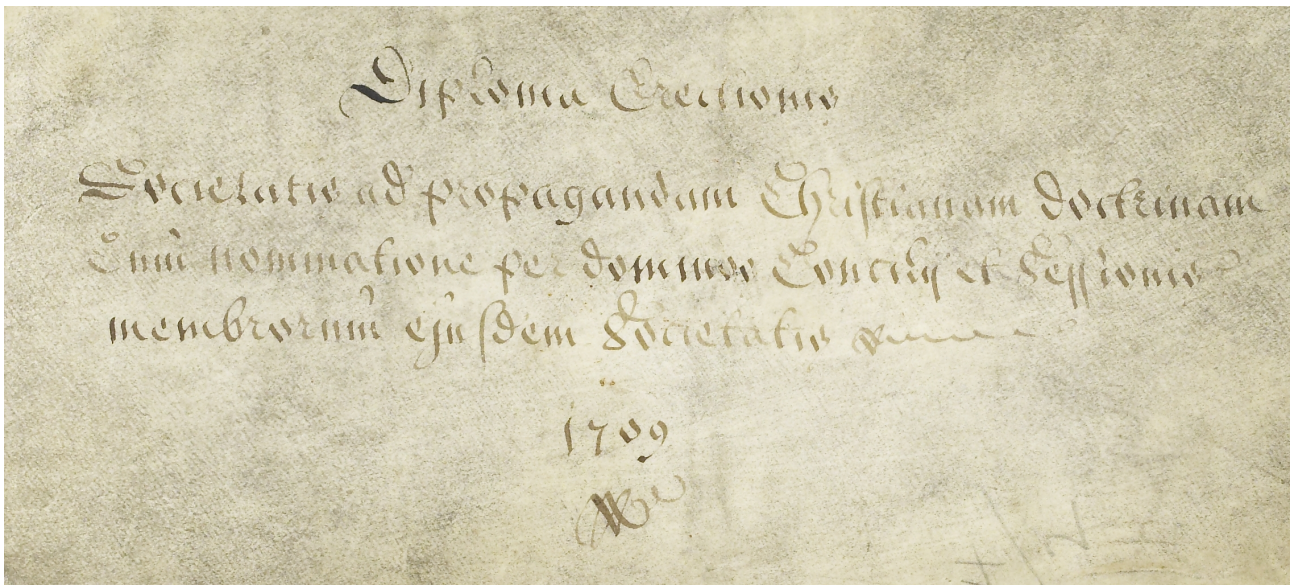 Diploma Erectionis
Societatis ad propagandam Christianam doctrinam
Cum nominatione per dominos Concilij et Sessionis
membrorum ejusdem Societatis
1709